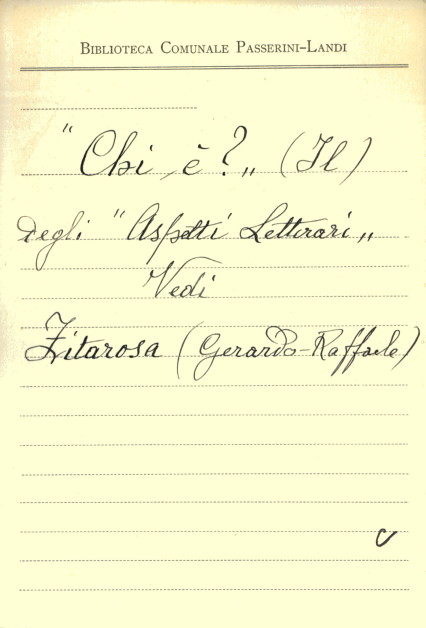 BIBLIOTECA COMUNALE PASSERINI-LANDI
"Chi è?„ (Il)
degli "Aspetti Letterari„
Vedi
Zitarosa (Gerardo-Raffaele)